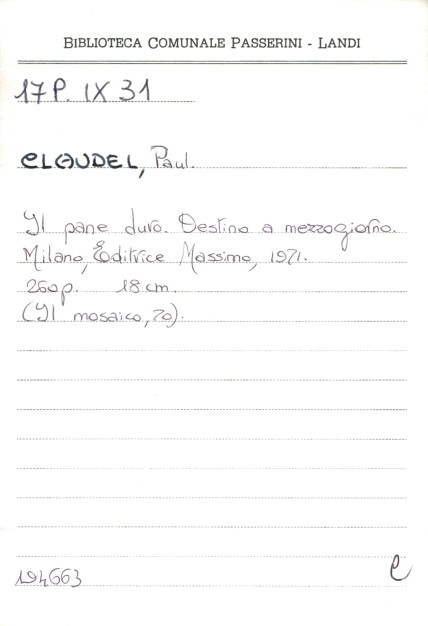 BIBLIOTECA COMUNALE PASSERINI - LANDI
17 P. IX 31
CLAUDEL, Paul.
Il pane duro. Destino a mezzogiorno.
Milano, Editrice Massimo, 1971.
260 p. 18 cm.
(Il mosaico, 70).
194663
e